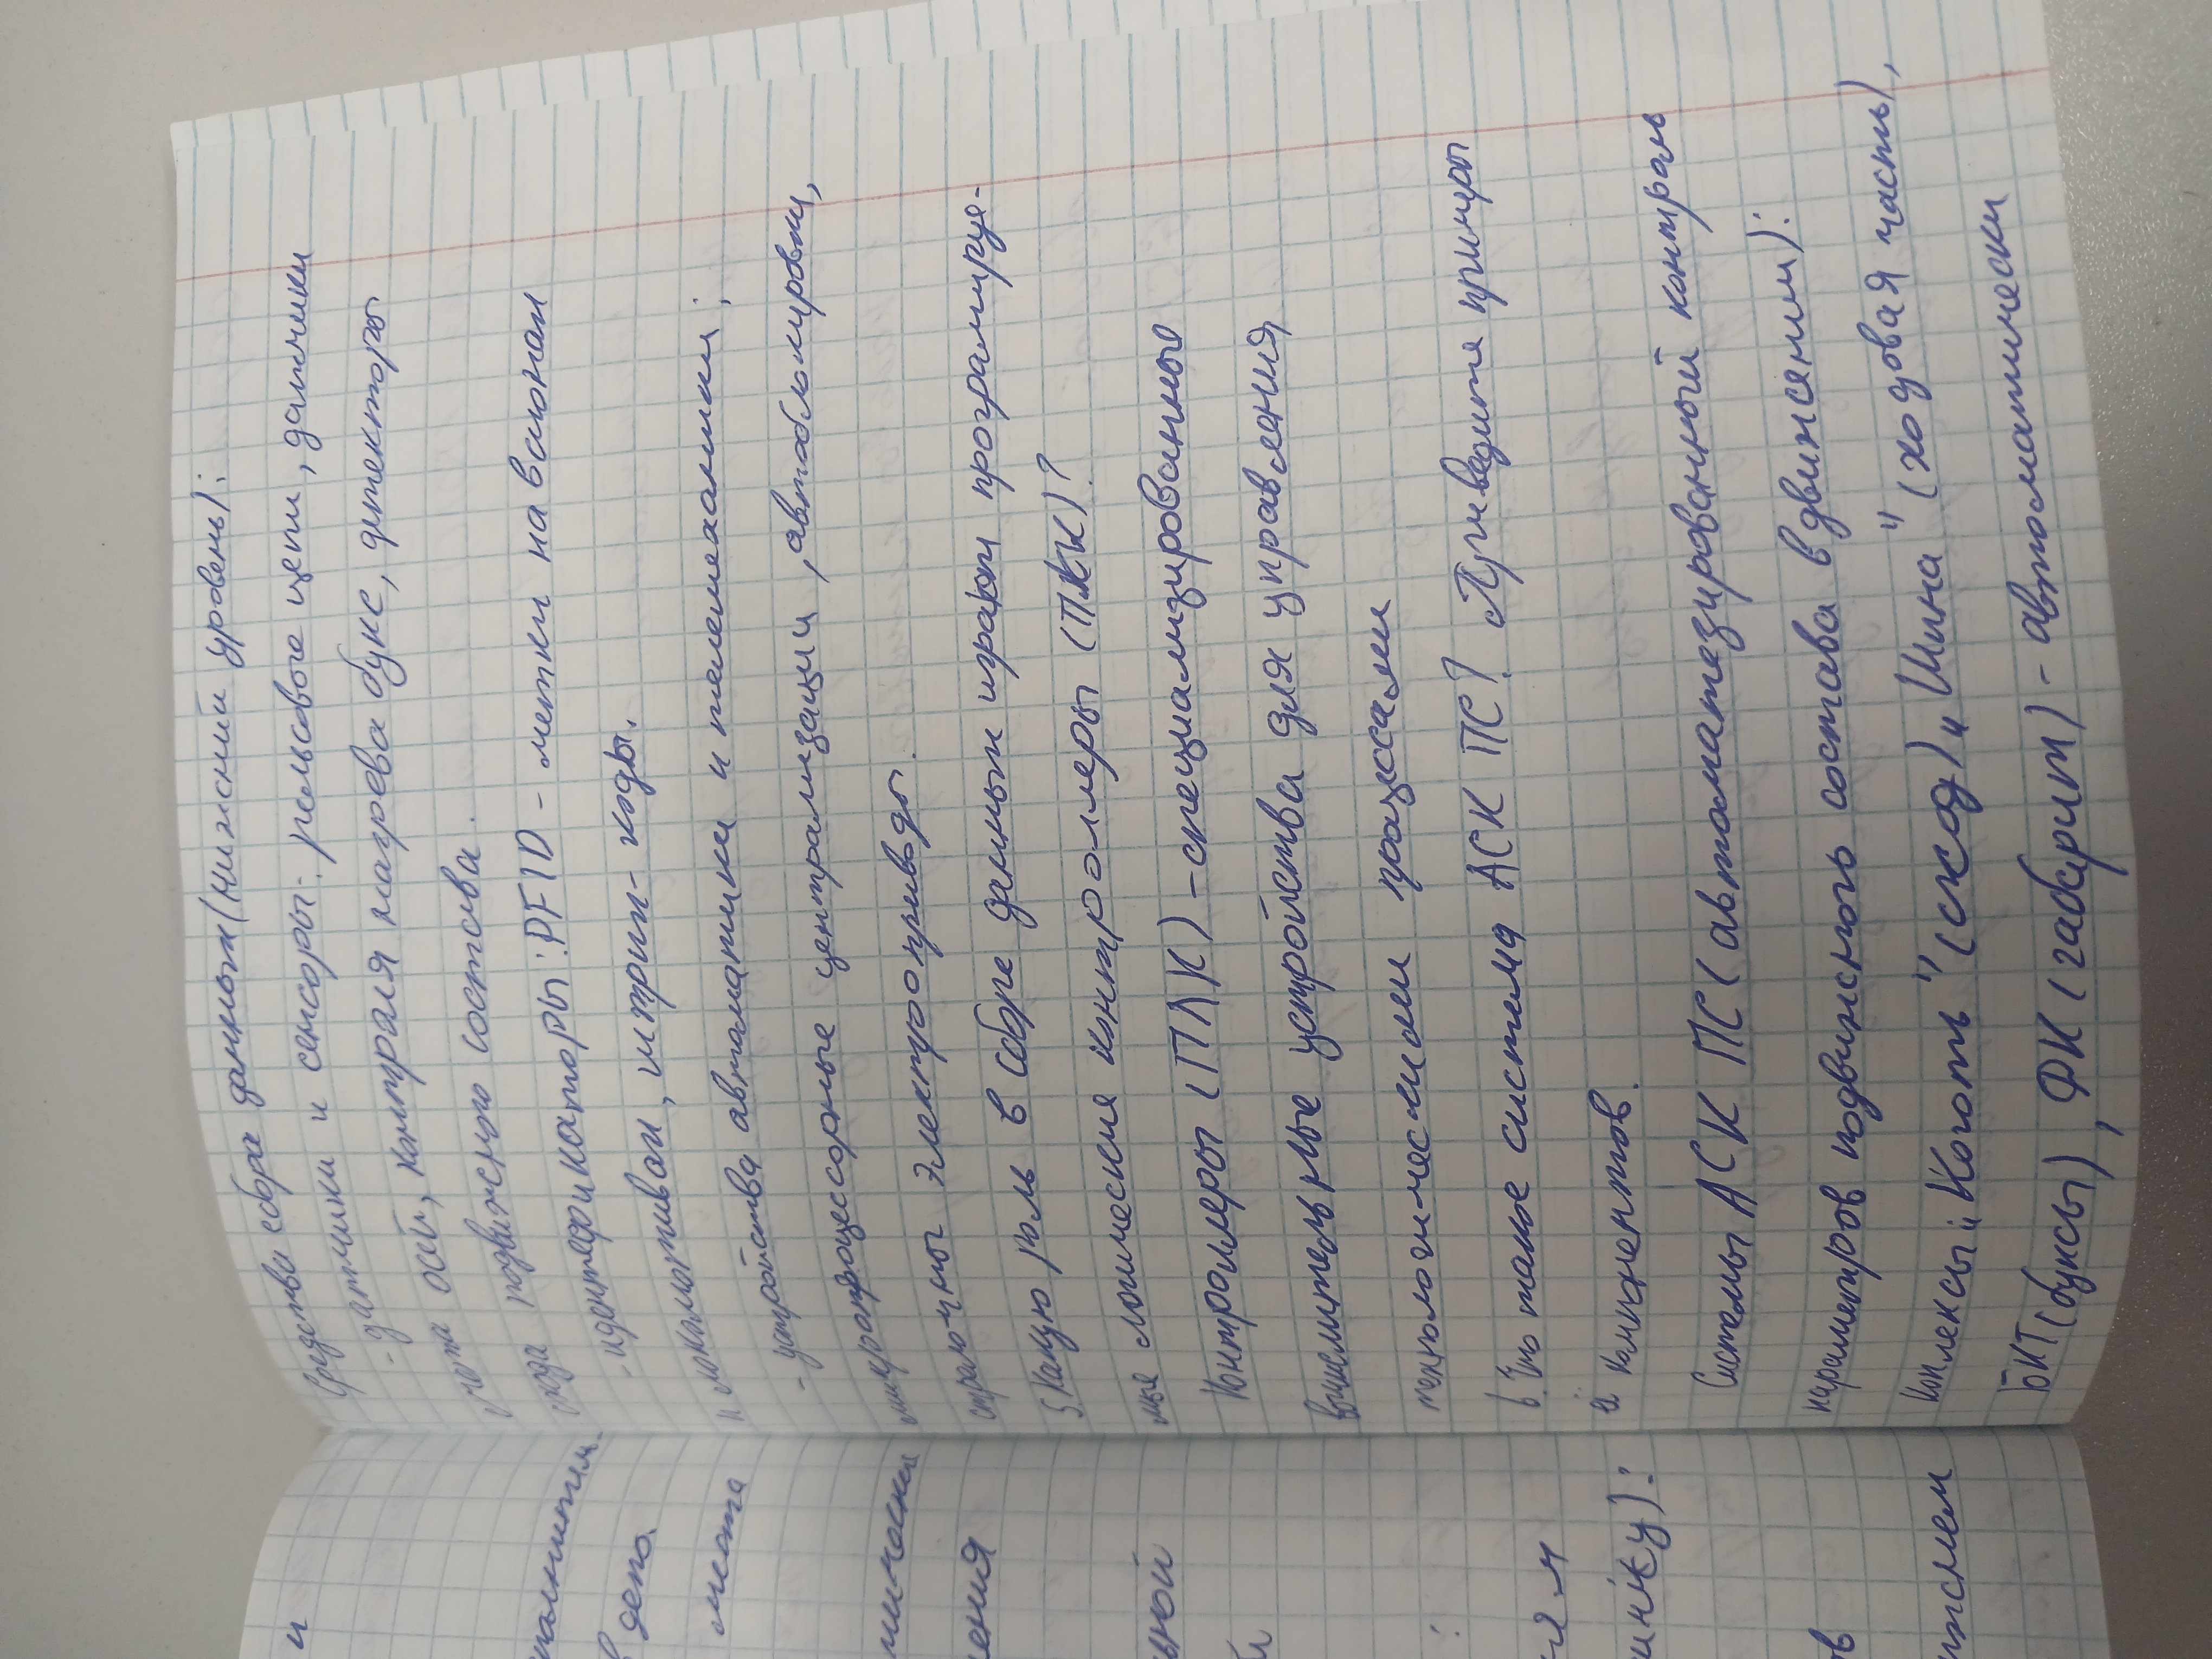 и
чалнитил-
в депо.
места
мически
ения
ьной
й
:
ги
инку):
в
нжем
Средства сбора данных (нижсний уровень):
- датчики и сенсоры: рельсовые цепи, датчики
счёта осей, контраля нагрева букс, детекторы
схода подвижсного состава.
- идентефикаторы: РFID - метки на вагонах
и локомотивах, штрих-коды.
- устройства автоматики и телемеханики:
микропроцессорные централизаци, автоблокировки,
стрелочны электроприводы.
5. Какую роль в сборе данных играют програмируе-
мые логические контролеры (ПЛК)?
Контроллеры (ПЛК) - специализированные
вычислительные устройства для управления
технологическими процессами
6. Что такое система АСК ПС? Приведите примеры
её компонентов.
Системы АСК ПС (автоматезированный контроль
параметров подвижсного состава в движсении):
Комплексы „Коготь" (сход), „Шина" (ходовая часть),
БКТ (буксы), ФК (габарит) - автоматически